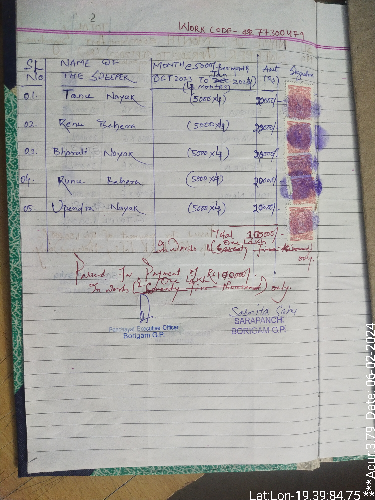 2
WORK CODE-
SL No
NAME OF THE SWEEPER
MONTH @5000/-
OCT 2023 TO
(4 MONTHS)
Amt (Rs)
01. Tanu Nayak (5000x4) 20000/-
02 Renu Behera (5000x4) 20000/-
03. Bharati Nayak (5000x4) 20000/-
04. Runu Behera (5000x4) 20000/-
05 Upendra Nayak (5000x4) 20000/-
Total 100000/-
One Lakh
only.
Passed for Payment of Rs 100000/-
One Lakh
In words ( ) only.
Panchayat Executive Officer
Borigam G.P.
Sabita
SARAPANCH
BORIGAM G.P.
Lat:Lon-19.39:84.75
***Acur:3.79 Date:06-02-2024